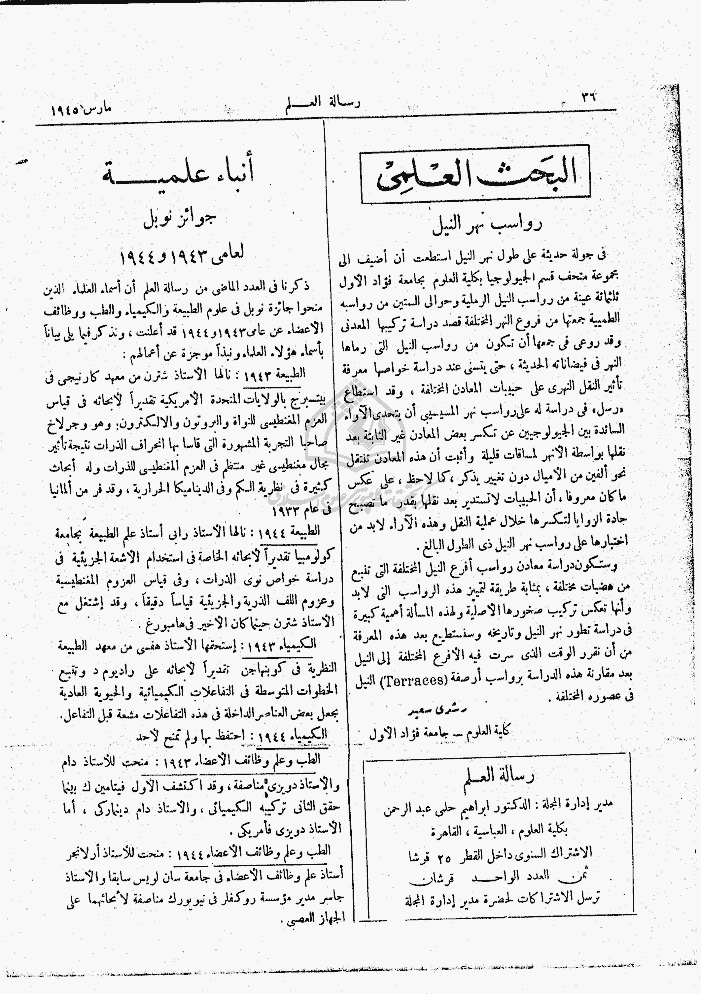 ٣٦
رسالة العلم
مارس ١٩٤٥
البحث العلمى
رواسب نهر النيل
فى جولة حديثة على طول نهر النيل استطعت أن أضيف الى
مجموعة متحف قسم الجيولوجيا بكلية العلوم بجامعة فؤاد الأول
ثلثمائة عينة من رواسب النيل الرملية وحوالى الستين من رواسبه
الطميية جمعتها من فروع النهر المختلفة قصد دراسة تركيبها المعدنى
وقد روعى فى جمعها أن تكون من رواسب النيل التى رماها
النهر فى فيضاناته الحديثة ، حتى يتسنى عند دراسة خواصها معرفة
تأثير النقل النهرى على حبيبات المعادن المختلفة ، وقد استطاع
«رسل» فى دراسة له على رواسب نهر المسيسيبى أن يتحدى الآراء
السائدة بين الجيولوجيين عن تكسر بعض المعادن غير الثابتة بعد
نقلها بواسطة الأنهر لمسافات قليلة وأثبت أن هذه المعادن تنتقل
نحو ألفين من الاميال دون تغيير يذكر ، كما لاحظ ، على عكس
ما كان معروفا ، أن الحبيبات لا تستدير بعد نقلها بقدر ما تصبح
جادة الزوايا لتكسرها خلال عملية النقل وهذه الآراء لابد من
اختبارها على رواسب نهر النيل ذى الطول البالغ .
وستكون دراسة معادن رواسب أفرع النيل المختلفة التى تنبع
من هضبات مختلفة ، بمثابة طريقة لتمييز هذه الرواسب التى لابد
وأنها تعكس تركيب صخورها الاصلية ولهذه المسألة أهمية كبيرة
فى دراسة تطور نهر النيل وتاريخه وسنستطيع بعد هذه المعرفة
من أن نقرر الوقت الذى سرت فيه الأفرع المختلفة إلى النيل
بعد مقارنة هذه الدراسة برواسب أرصفة (Terraces) النيل
فى عصوره المختلفة .
رشدى سعيد
كلية العلوم – جامعة فؤاد الأول
رسالة العلم
مدير إدارة المجلة : الدكتور ابراهيم حلمى عبد الرحمن
بكلية العلوم ، العباسية ، القاهرة
الاشتراك السنوى داخل القطر ٢٥ قرشا
ثمن العدد الواحد قرشان
ترسل الاشتراكات لحضرة مدير إدارة المجلة
أنباء علمية
جوائز نوبل
لعامى ١٩٤٣ و ١٩٤٤
ذكرنا فى العدد الماضى من رسالة العلم أن أسماء العلماء الذين
منحوا جائزة نوبل فى علوم الطبيعة والكيمياء والطب ووظائف
الأعضاء عن عامى ١٩٤٣ و ١٩٤٤ قد أعلنت ، ونذكر فيما يلى بياناً
بأسماء هؤلاء العلماء ونبذاً موجزة عن أعمالهم :
الطبيعة ١٩٤٣ : نالها الأستاذ شترن من معهد كارنيجى فى
بيتسبرج بالولايات المتحدة الأمريكية تقديراً لأبحاثه فى قياس
العزم المغنطيسى للنواة والبروتون والالكترون ; وهو وجرلاخ
صاحبا التجربة المشهورة التى قاسا بها انحراف الذرات نتيجة تأثير
مجال مغنطيسى غير منتظم فى العزم المغنطيسى للذرات وله أبحاث
كثيرة فى نظرية الكم وفى الديناميكا الحرارية ، وقد فر من ألمانيا
فى عام ١٩٣٣
الطبيعة ١٩٤٤ : نالها الأستاذ رابى أستاذ علم الطبيعة بجامعة
كولومبيا تقديراً لأبحاثه الخاصة فى استخدام الأشعة الجزيئية فى
دراسة خواص نوى الذرات ، وفى قياس العزوم المغنطيسية
وعزوم اللف الذرية والجزيئية قياساً دقيقاً ، وقد إشتغل مع
الأستاذ شترن حينما كان الأخير فى هامبورغ .
الكيمياء ١٩٤٣ : إستحقها الأستاذ هفسى من معهد الطبيعة
النظرية فى كوبنهاجن تقديراً لأبحاثه على راديوم د وتتبع
الخطوات المتوسطة فى التفاعلات الكيميائية والحيوية العادية
بجعل بعض العناصر الداخلة فى هذه التفاعلات مشعة قبل التفاعل.
الكيمياء ١٩٤٤ : احتفظ بها ولم تمنح لأحد
الطب وعلم وظائف الأعضاء ١٩٤٣ : منحت للأستاذ دام
والأستاذ دويزى مناصفة ، وقد اكتشف الأول فيتامين ك بينما
حقق الثانى تركيبه الكيميائى ، والأستاذ دام دينماركى ، أما
الأستاذ دويزى فأمريكى .
الطب وعلم وظائف الأعضاء ١٩٤٤ : منحت للأستاذ أرلانجر
أستاذ علم وظائف الأعضاء فى جامعة سان لويس سابقا والأستاذ
جاسر مدير مؤسسة روكفلر فى نيويورك مناصفة لأبحاثهما على
الجهاز العصبى .